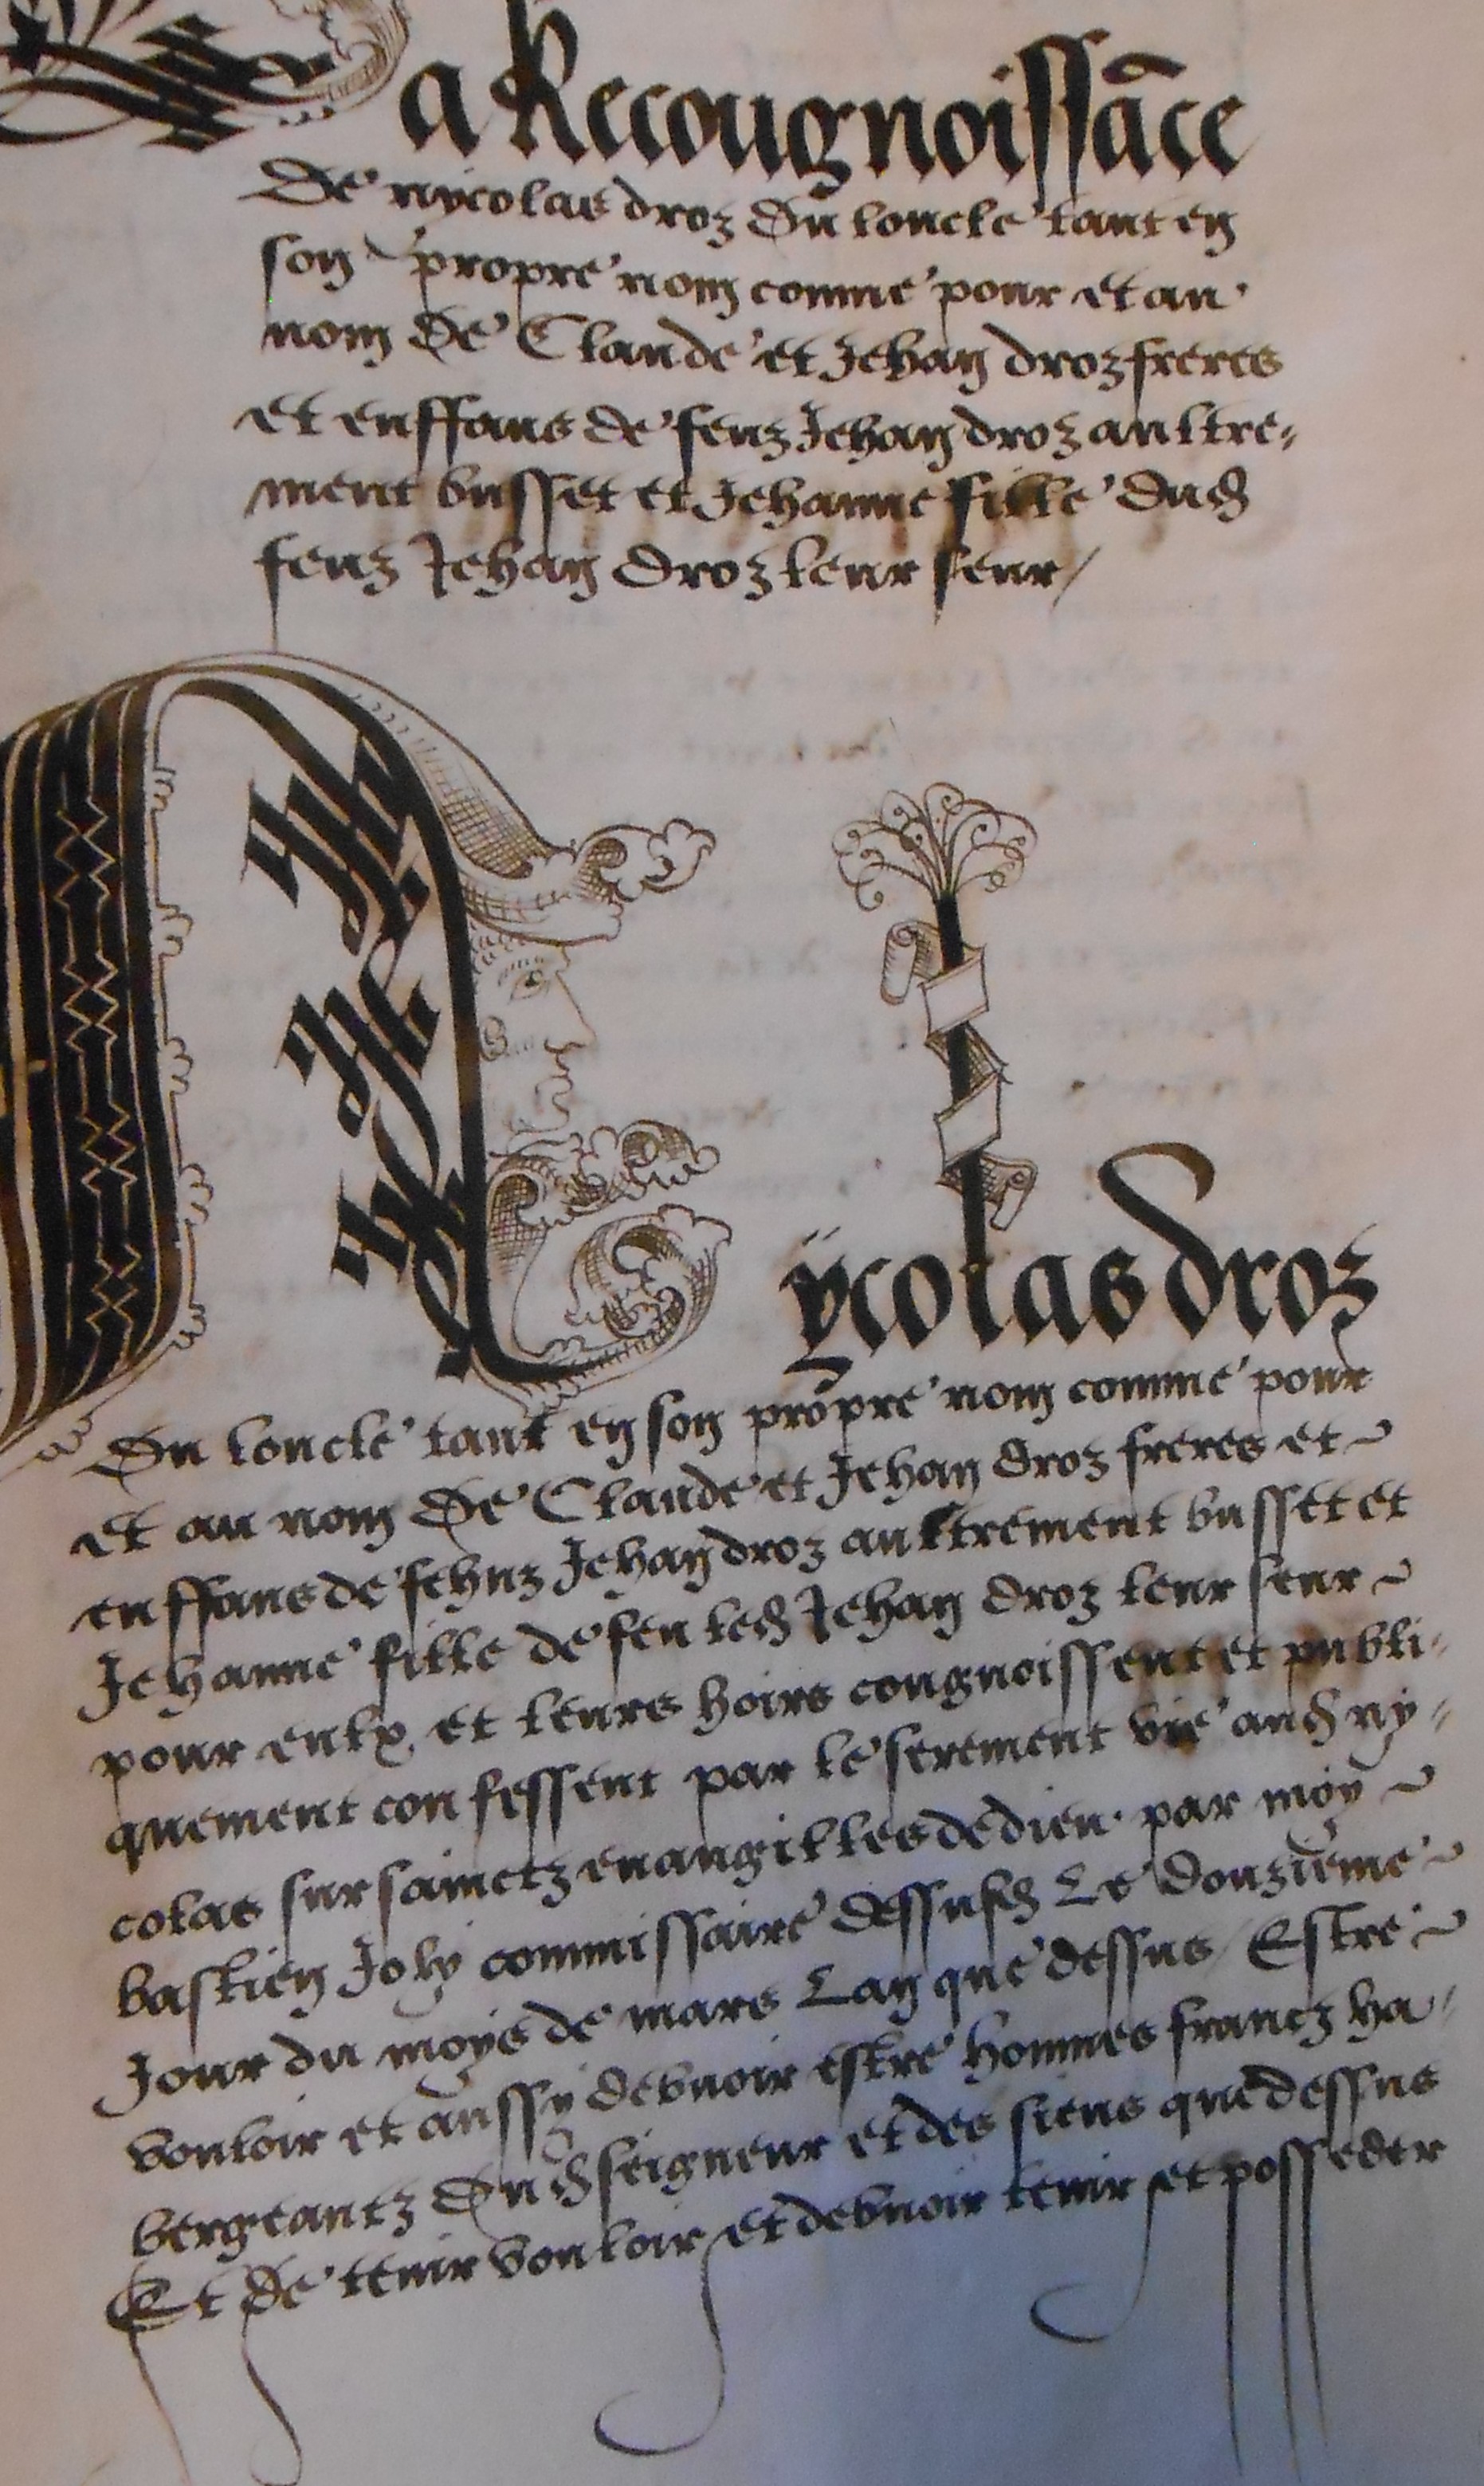 La Recougnoissāce
De nycolas droz Du loucle tant en
son propre nom comme pour et au
nom De Claude et Jehan droz freres
et enffans de feuz Jehan droz aultre-
ment busset et Jehanne fille Dud
feuz Jehan Droz leur seur /
Nÿcolas droz
Du loucle tant en son propre nom comme pour
et au nom De Claude et Jehan droz freres et
enffans de fehuz Jehan droz aultrement busset et
Jehanne fille de feu led Jehan droz leur seur
pour eulx et leurs hoirs congnoissent et publi-
quement confessent par le serement aud ny-
colas sur sainctz euangilles de dieu par moy
bastien Joly commissaire dessusd Le douzieme
Jour du moys de mars Lan que dessus / Estre
vouloir et aussy debuoir estre hommes francz ha-
bergeantz Dud seigneur et des siens que dessus
Et De tenir vouloir et debuoir tenir et posseder